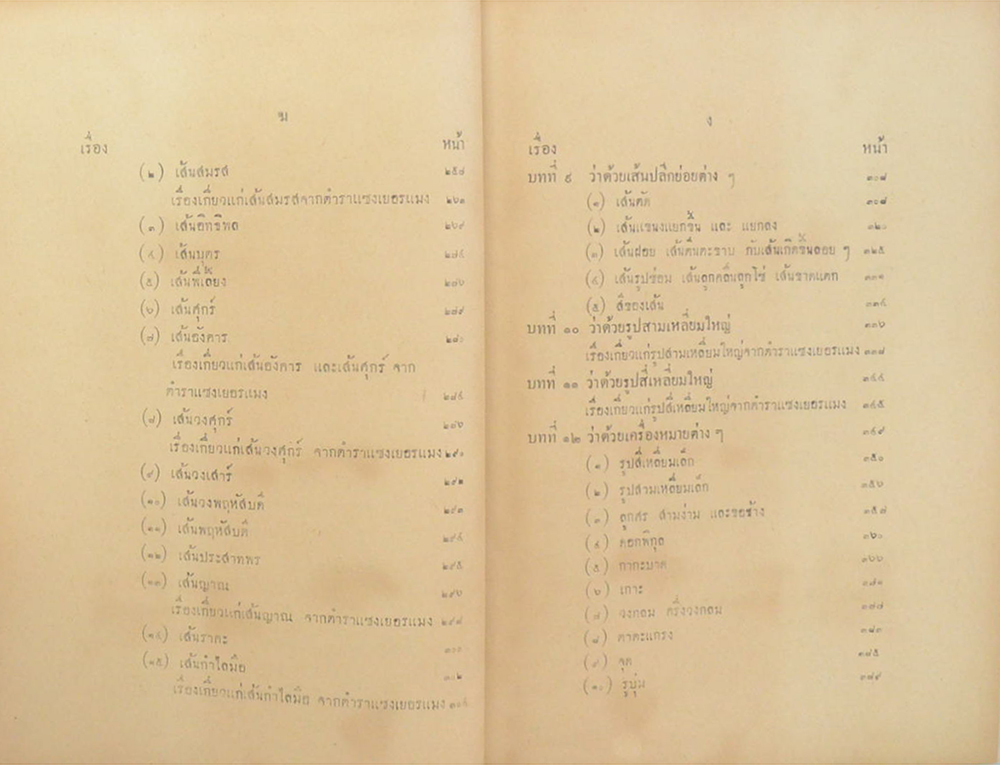 ฆ
เรื่อง หน้า
(๒) เส้นสมรส ๒๕๗
เรื่องเกี่ยวแก่เส้นสมรสจากตำราแซงเยอรแมง ๒๖๑
(๓) เส้นอิทธิพล ๒๖๙
(๔) เส้นบุตร
(๕) เส้นพี่เลี้ยง ๒๗๖
(๖) เส้นศุกร์ ๒๗๙
(๗) เส้นอังคาร ๒๘๐
เรื่องเกี่ยวแก่เส้นอังคาร และเส้นศุกร์ จาก
ตำราแซงเยอรแมง
(๘) เส้นวงศุกร์ ๒๘๖
เรื่องเกี่ยวแก่เส้นวงศุกร์ จากตำราแซงเยอรแมง ๒๙๐
(๙) เส้นวงเสาร์ ๒๙๒
(๑๐) เส้นวงพฤหัสบดี ๒๙๓
(๑๑) เส้นพฤหัสบดี ๒๙๔
(๑๒) เส้นประสาทพร ๒๙๕
(๑๓) เส้นญาณ ๒๙๖
เรื่องเกี่ยวแก่เส้นญาณ จากตำราแซงเยอรแมง
(๑๔) เส้นราคะ ๓๐๐
(๑๕) เส้นกำไลมือ ๓๐๒
เรื่องเกี่ยวแก่เส้นกำไลมือ จากตำราแซงเยอรแมง
ง
เรื่อง หน้า
บทที่ ๙ ว่าด้วยเส้นปลีกย่อยต่าง ๆ ๓๐๘
(๑) เส้นตัด ๓๐๘
(๒) เส้นแขนงแยกขึ้น และ แยกลง
(๓) เส้นฝอย เส้นคืนตะราบ กับเส้นเกิดขึ้นลอย ๆ ๓๒๕
(๔) เส้นรูปซ่อม เส้นลูกคลื่นลูกโซ่ เส้นขาดแตก ๓๓๑
(๕) สีของเส้น
บทที่ ๑๐ ว่าด้วยรูปสามเหลี่ยมใหญ่ ๓๓๖
เรื่องเกี่ยวแก่รูปสามเหลี่ยมใหญ่จากตำราแซงเยอรแมง
บทที่ ๑๑ ว่าด้วยรูปสี่เหลี่ยมใหญ่ ๓๔๔
เรื่องเกี่ยวแก่รูปสี่เหลี่ยมใหญ่จากตำราแซงเยอรแมง ๓๔๕
บทที่ ๑๒ ว่าด้วยเครื่องหมายต่าง ๆ ๓๔๙
(๑) รูปสี่เหลี่ยมเล็ก ๓๕๐
(๒) รูปสามเหลี่ยมเล็ก ๓๕๖
(๓) ลูกศร สามง่าม และขอช้าง ๓๕๗
(๔) ดอกพิกุล ๓๖๐
(๕) กากะบาด ๓๖๖
(๖) เกาะ ๓๗๑
(๗) วงกลม ครึ่งวงกลม ๓๗๗
(๘) ตาตะแกรง
(๙) จุด
(๑๐) รูปุ่ม